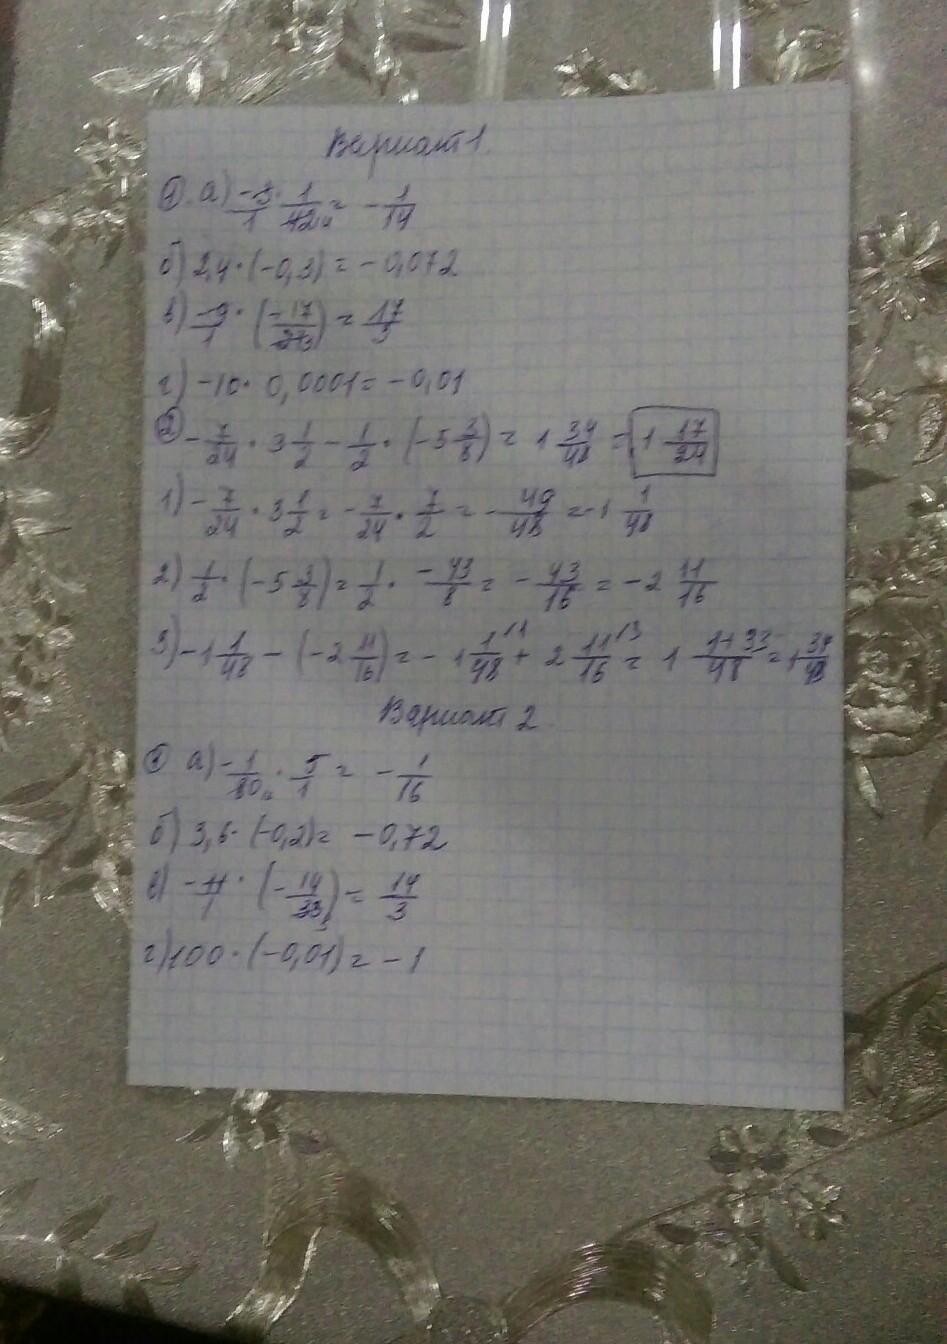 Вариант 1.
①. а) -3/1 · 1/42₁₄ = -1/14
б) 2,4 · (-0,3) = -0,072
в) -9/1 · (-17/27₃) = 17/3
г) -10 · 0,0001 = -0,01
② -7/24 · 3 1/2 - 1/2 · (-5 3/8) = 1 34/48 = 1 17/24
1) -7/24 · 3 1/2 = -7/24 · 7/2 = -49/48 = -1 1/48
2) 1/2 · (-5 3/8) = 1/2 · -43/8 = -43/16 = -2 11/16
3) -1 1/48 - (-2 11/16) = -1 1/48 + 2 11/16 = 1 1+33/48 = 1 34/48
Вариант 2
① а) -1/80 · 5/1 = -1/16
б) 3,6 · (-0,2) = -0,72
в) -11/1 · (-14/33₃) = 14/3
г) 100 · (-0,01) = -1